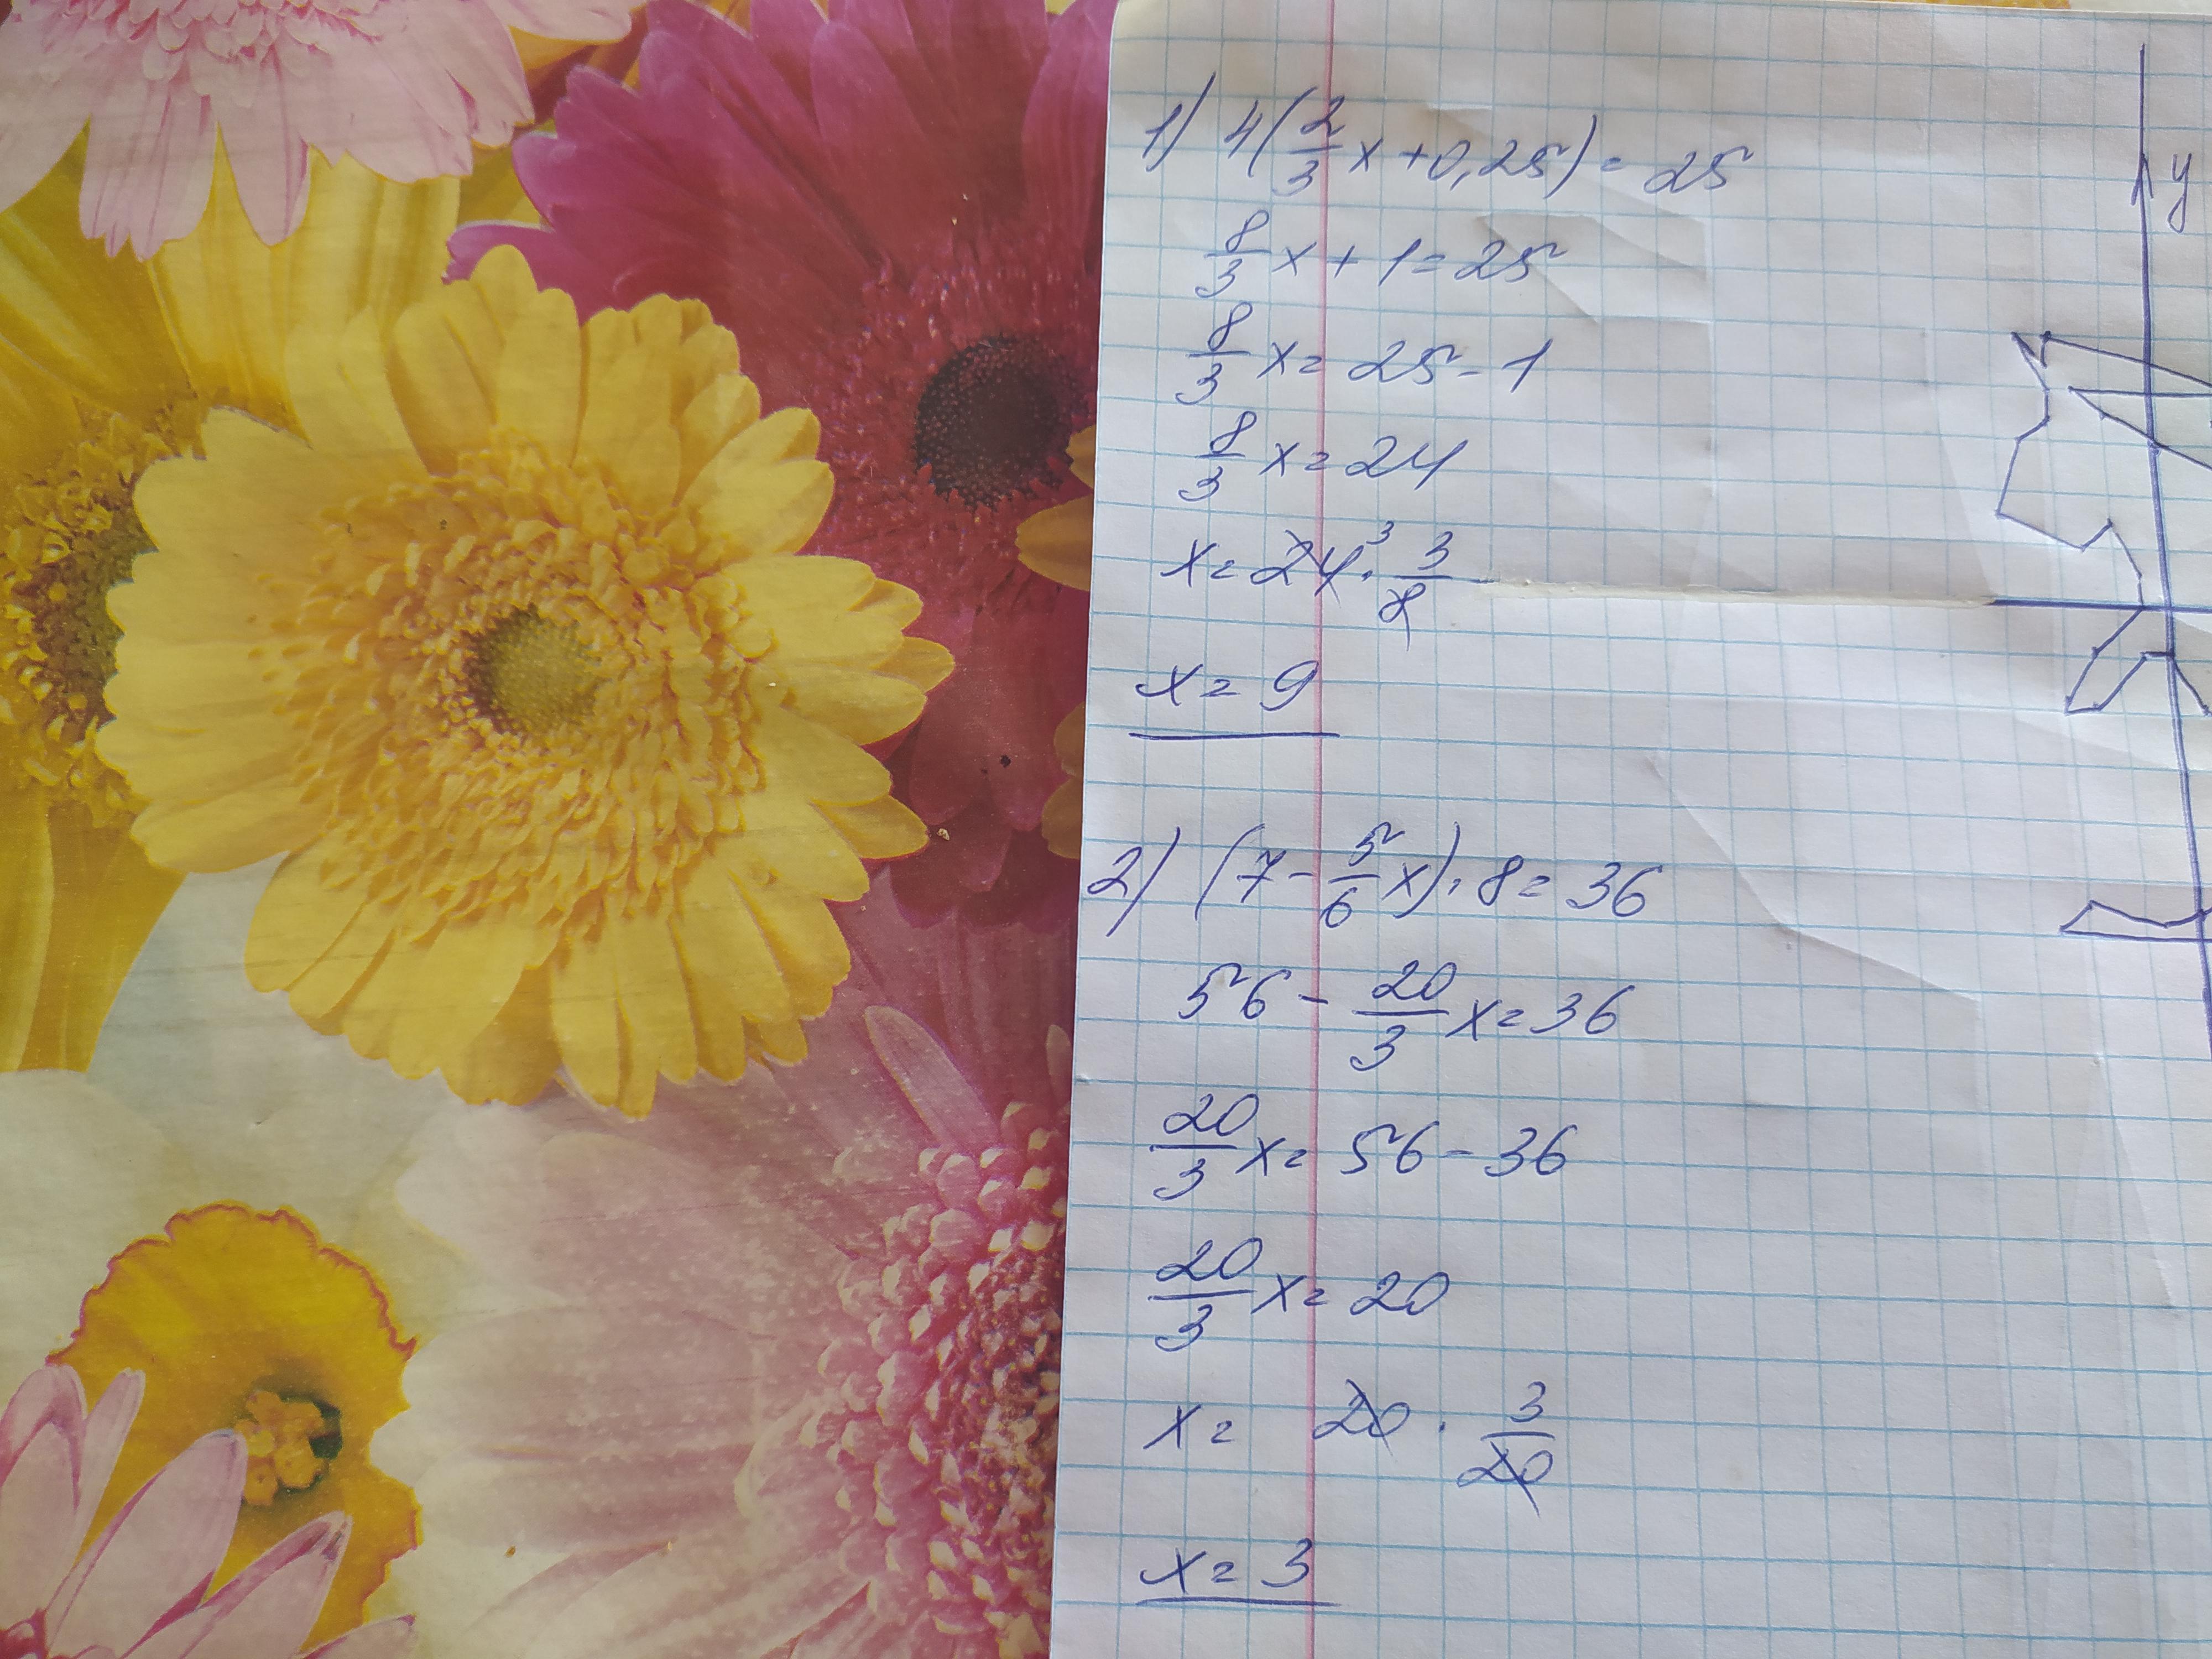 1) 4(2/3 x + 0,25) = 25
8/3 x + 1 = 25
8/3 x = 25 - 1
8/3 x = 24
x = 24³ · 3/8
x = 9
2) (7 - 5/6 x) · 8 = 36
56 - 20/3 x = 36
20/3 x = 56 - 36
20/3 x = 20
x = 20 · 3/20
x = 3
y